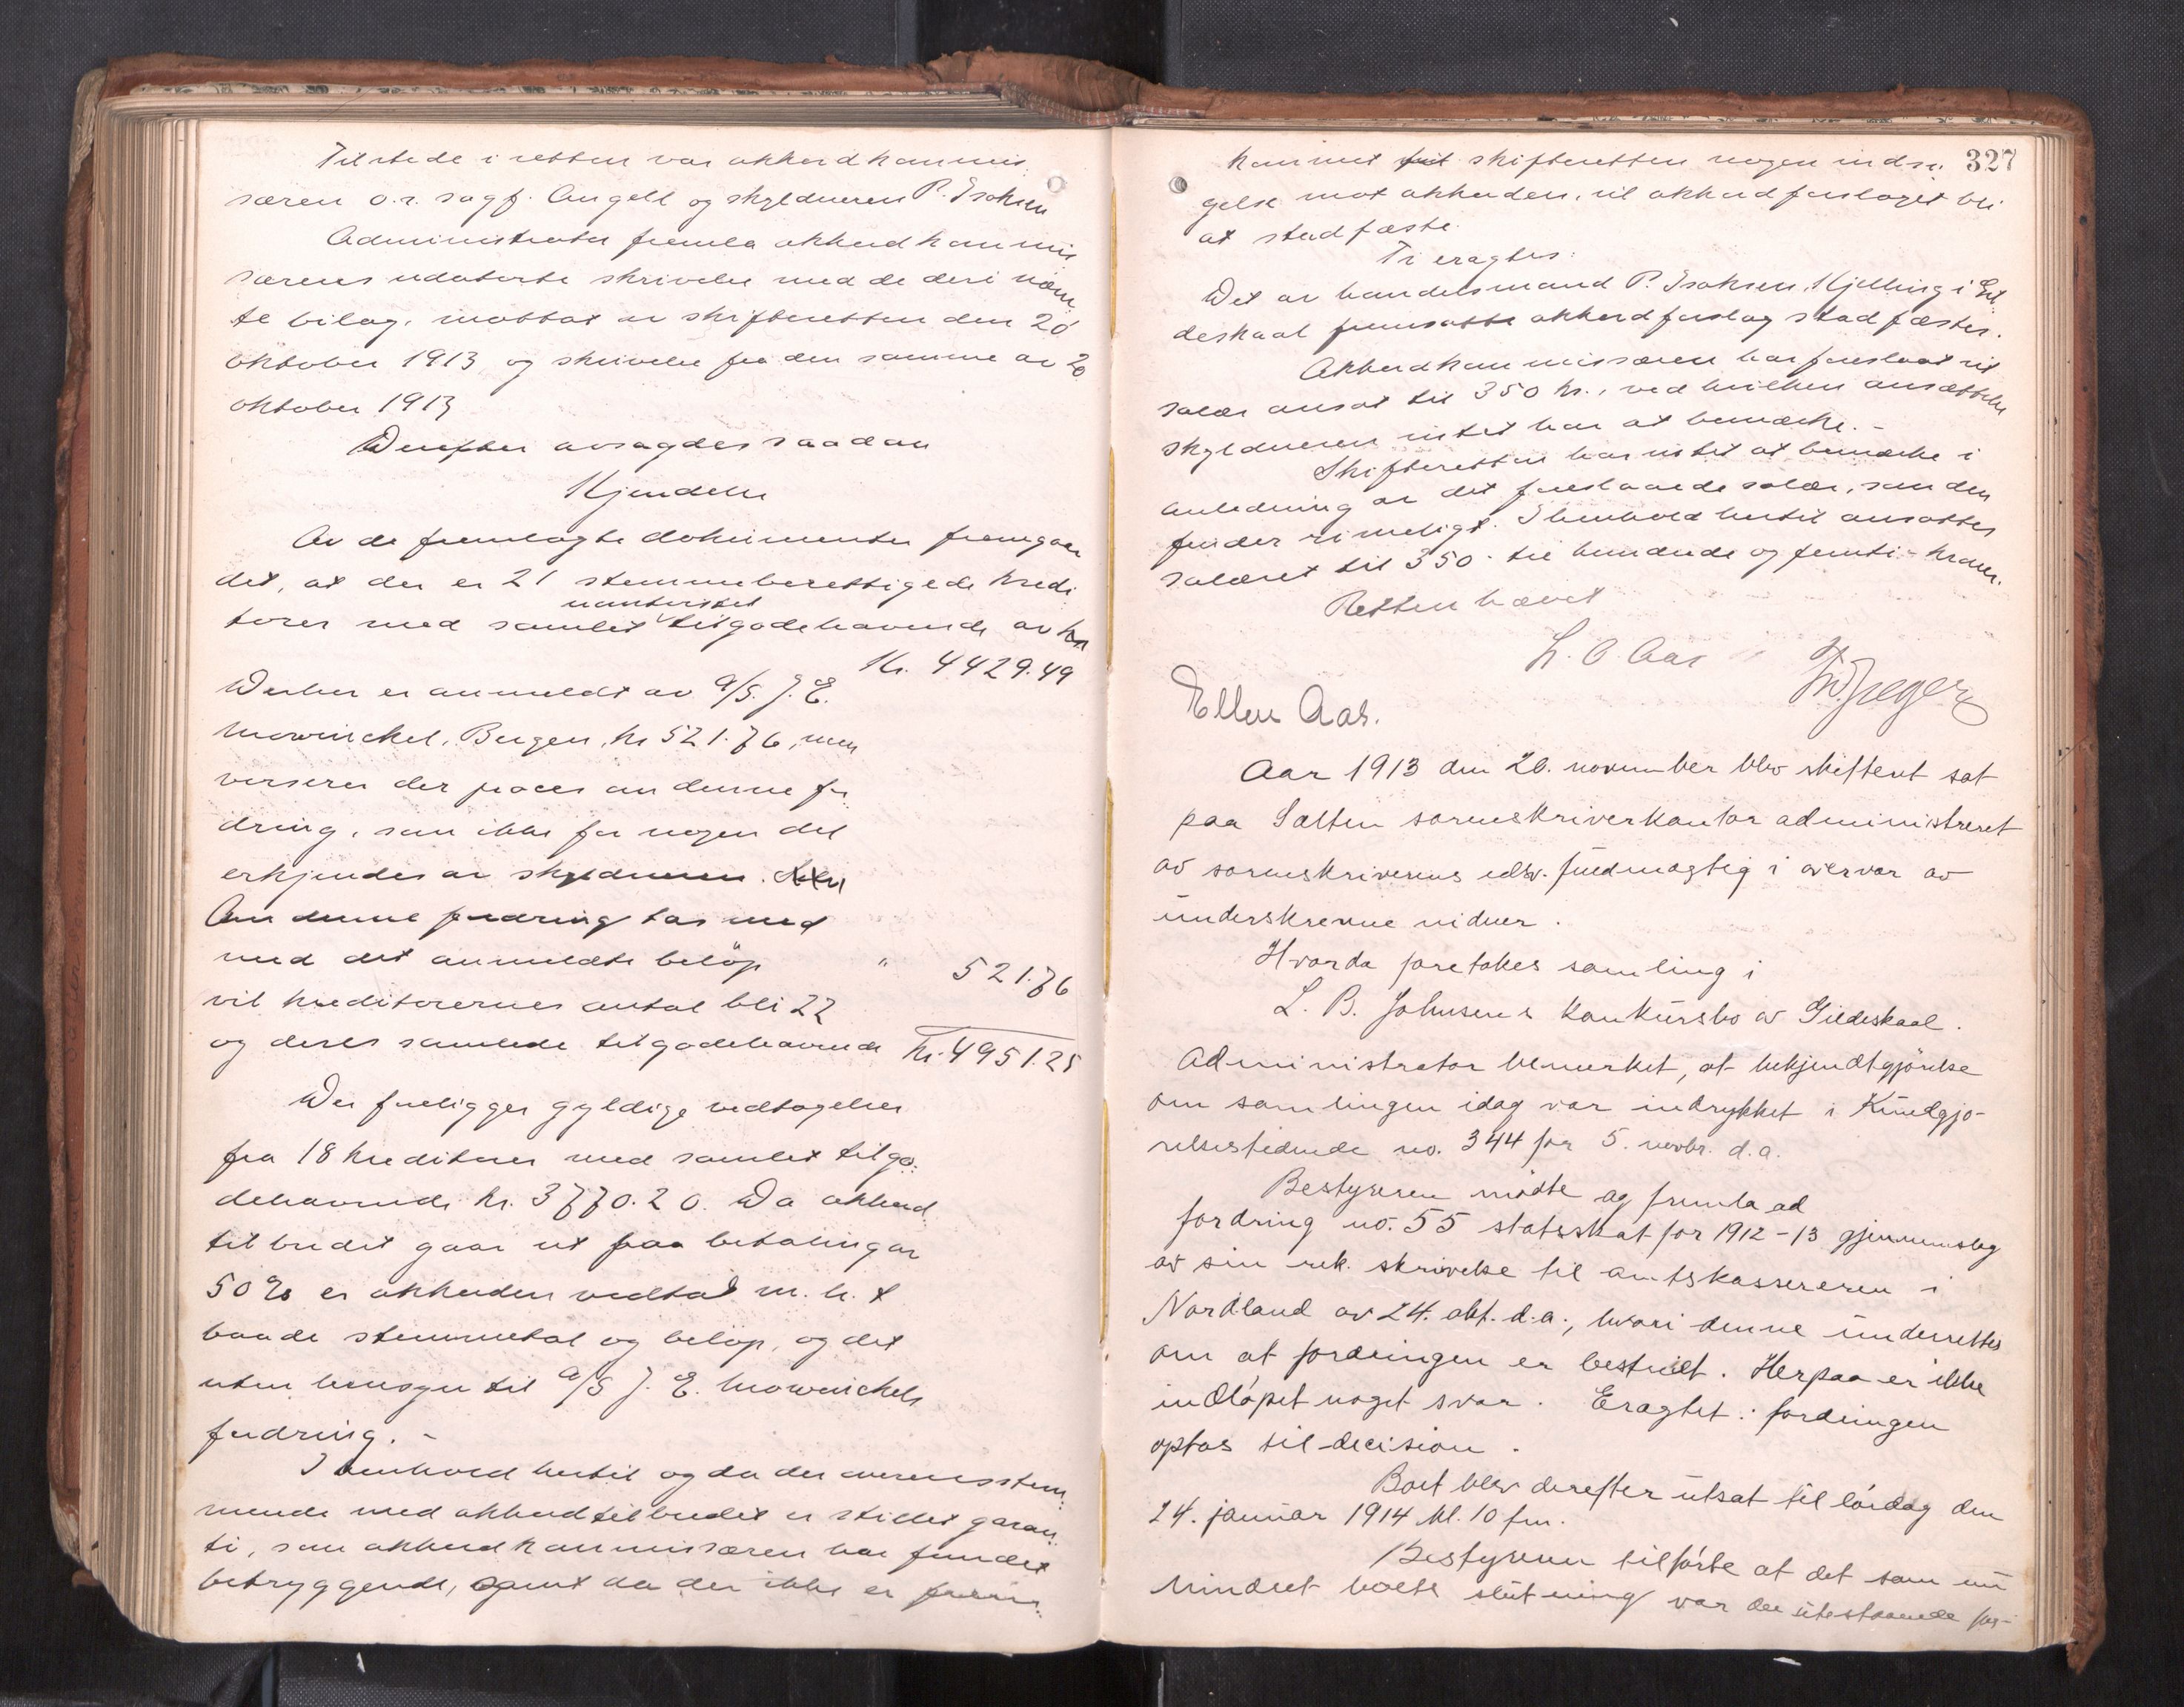 Tilstede i retten var akkordkommis-
særen o.r. sagf. Angell og skyldneren P. Isaksen
Administrator fremla akkordkommis
særens udaterte skrivelse med de deri nævn
te bilag, mottat av skifteretten den 20
oktober 1913 og skrivelse fra den samme av 20
oktober 1913
Derefter avsagdes saadan
Kjendelse
Av de fremlagte dokumenter fremgaar
det, at der er 21 stemmeberettigede kredi
uomtvistet
torer med samlet tilgodehavende av kr
Kr. 4429.49
Derhos er anmeldt av A/S. J. E.
Mowinckel, Bergen, kr 521.76, men
verserer der proces om denne for
dring, som ikke for nogen del
erkjendes av skyldneren.
Om denne fordring tas med
med det anmeldte beløp " 521.76
vil kreditorernes antal bli 22
og deres samlede tilgodehavende kr. 4951.25
Der foreligger gyldige vedtagelser
fra 18 kreditorer med samlet tilgo-
dehavende kr. 3770.20. Da akkord
tilbudet gaar ut paa betaling av
50% er akkorden vedtat m.h.t
baade stemmetal og beløp, og det
uten hensyn til A/S J. E. Mowinckels
fordring. -
I henhold hertil og da der overensstem-
mende med akkordtilbudet er stillet garan-
ti, som akkordkommissæren har fundet
betryggende, samt da der ikke er
327
kommet skifteretten nogen indsi-
gelse mot akkorden, vil akkordforslaget bli
at stadfæste.
Ti eragtes:
Det av handelsmand P. Isaksen, Kjelling i Gil
deskaal fremsatte akkordforslag stadfæstes.
Akkordkommissæren har foreslaat sit
salær ansat til 350 kr., ved hvilken ansættelse
skyldneren intet har at bemærke. -
Skifteretten har intet at bemærke i
anledning av det foreslaaede salær, som den
finder rimeligt. I henhold hertil ansattes
salæret til 350 - tre hundrede og femti - kroner.
Retten hævet
L. O. Aas Fr. Jæger
Ellen Aas.
Aar 1913 den 20. november blev skifteret sat
paa Salten sorenskriverkontor administreret
av sorenskriverens edsv. fuldmægtig i overvær av
underskrevne vidner.
Hvorda foretokes samling i
L. B. Johnsens konkursbo av Gildeskaal.
Administrator bemerket, at bekjendtgjørelse
om samlingen idag var indrykket i Kundgjø-
relsestidende no. 344 for 5. novbr. d.a.
Bestyreren mødte og fremla ad
fordring no. 55 statsskat for 1912-13 gjennemslag
av sin rek. skrivelse til amtskassereren i
Nordland av 24. okt. d.a., hvori denne underrettes
om at fordringen er bestridt. Herpaa er ikke
indløpet noget svar. Eragtet: fordringen
optas til decision.
Boet blev derefter utsat til lørdag den
24. januar 1914 kl. 10 fm.
Bestyreren tilførte at det som nu
hindret boets slutning var de utestaaende for-